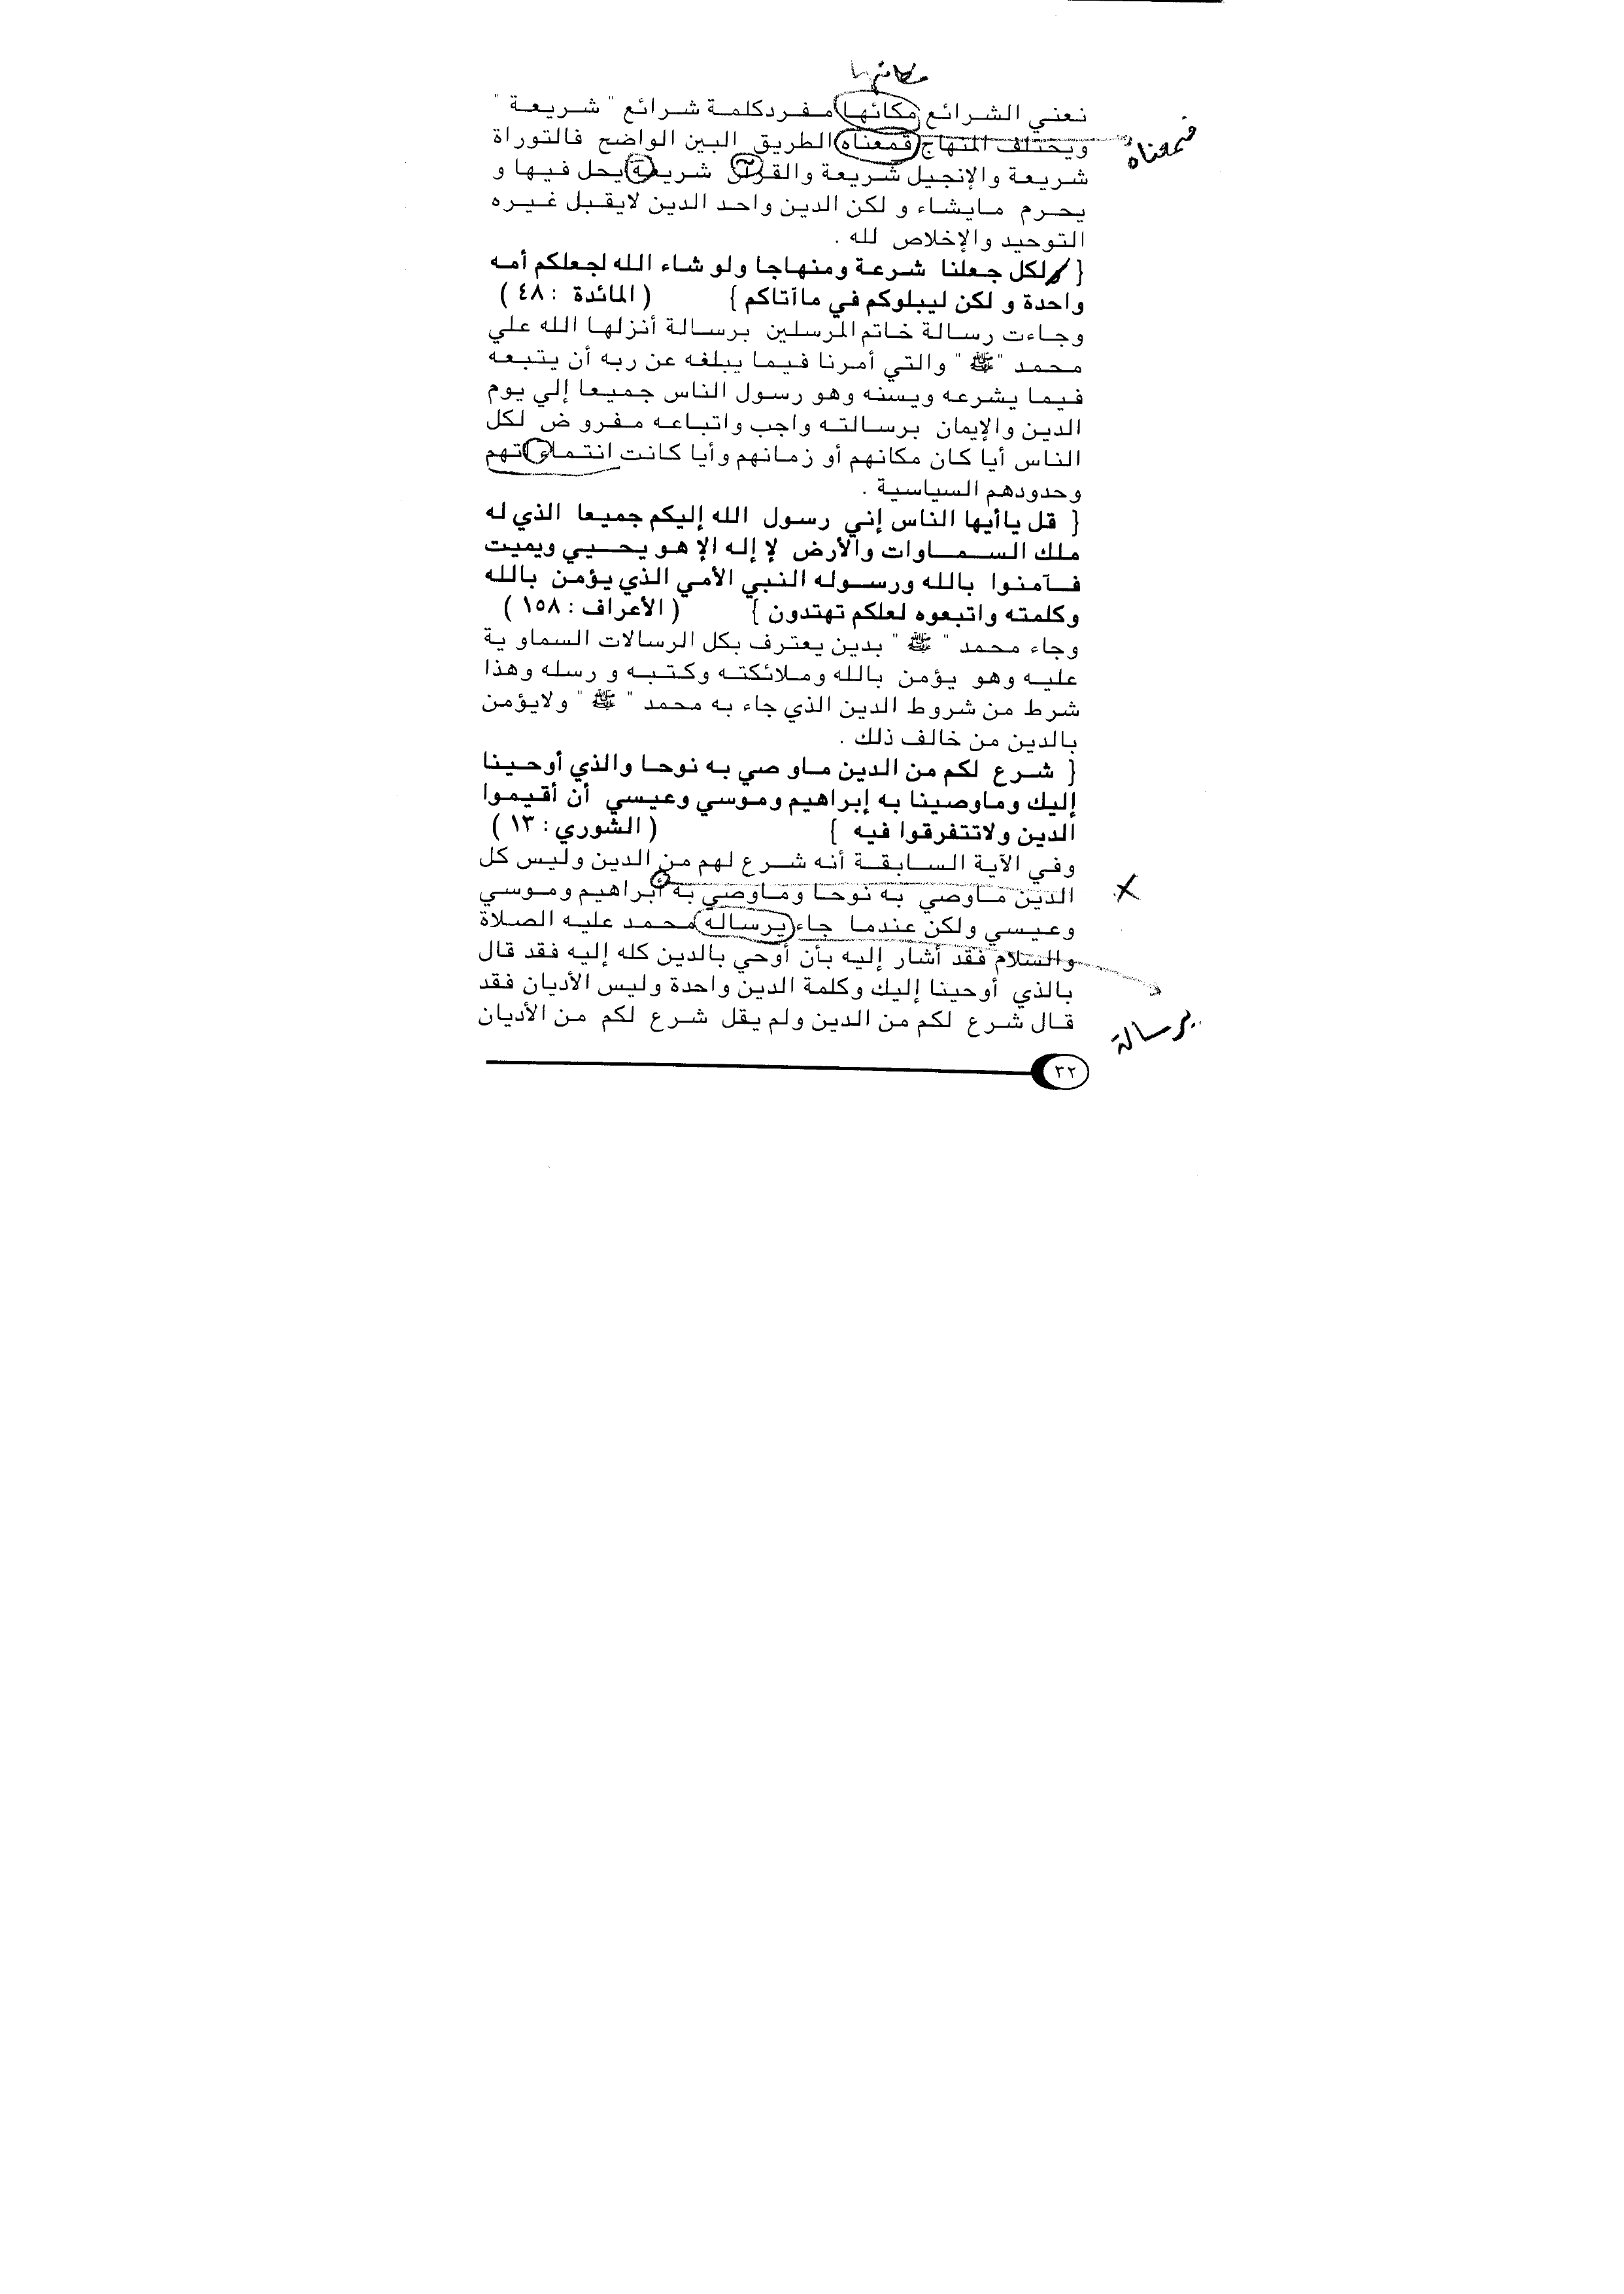 مكانتها
نعني الشرائع مكائها مفردكلمة شرائع " شريعة "
ويختلف المنهاج قمعناه الطريق البين الواضح فالتوراة
فمعناه
شريعة والإنجيل شريعة والقرآن شريعة يحل فيها و
يحرم مايشاء و لكن الدين واحد الدين لايقبل غيره
التوحيد والإخلاص لله .
{ لكل جعلنا شرعة ومنهاجا ولو شاء الله لجعلكم أمه
واحدة و لكن ليبلوكم في ماآتاكم } ( المائدة : ٤٨ )
وجاءت رسالة خاتم المرسلين برسالة أنزلها الله علي
محمد " ﷺ " والتي أمرنا فيما يبلغه عن ربه أن يتبعه
فيما يشرعه ويسنه وهو رسول الناس جميعا إلي يوم
الدين والإيمان برسالته واجب واتباعه مفرو ض لكل
الناس أيا كان مكانهم أو زمانهم وأيا كانت انتماءتهم
وحدودهم السياسية .
{ قل ياأيها الناس إني رسول الله إليكم جميعا الذي له
ملك السماوات والأرض لا إله الإ هو يحيي ويميت
فآمنوا بالله ورسوله النبي الأمي الذي يؤمن بالله
وكلمته واتبعوه لعلكم تهتدون } ( الأعراف : ١٥٨ )
وجاء محمد " ﷺ " بدين يعترف بكل الرسالات السماو ية
عليه وهو يؤمن بالله وملائكته وكتبه و رسله وهذا
شرط من شروط الدين الذي جاء به محمد " ﷺ " ولايؤمن
بالدين من خالف ذلك .
{ شرع لكم من الدين ماو صي به نوحا والذي أوحينا
إليك وماوصينا به إبراهيم وموسي وعيسي أن أقيموا
الدين ولاتتفرقوا فيه } ( الشوري : ١٣ )
وفي الآية السابقة أنه شرع لهم من الدين وليس كل
الدين ماوصي به نوحا وماوصي به أبراهيم وموسي
وعيسي ولكن عندما جاء يرساله محمد عليه الصلاة
والسلام فقد أشار إليه بأن أوحي بالدين كله إليه فقد قال
بالذي أوحينا إليك وكلمة الدين واحدة وليس الأديان فقد
قال شرع لكم من الدين ولم يقل شرع لكم من الأديان
برسالة
٣٢